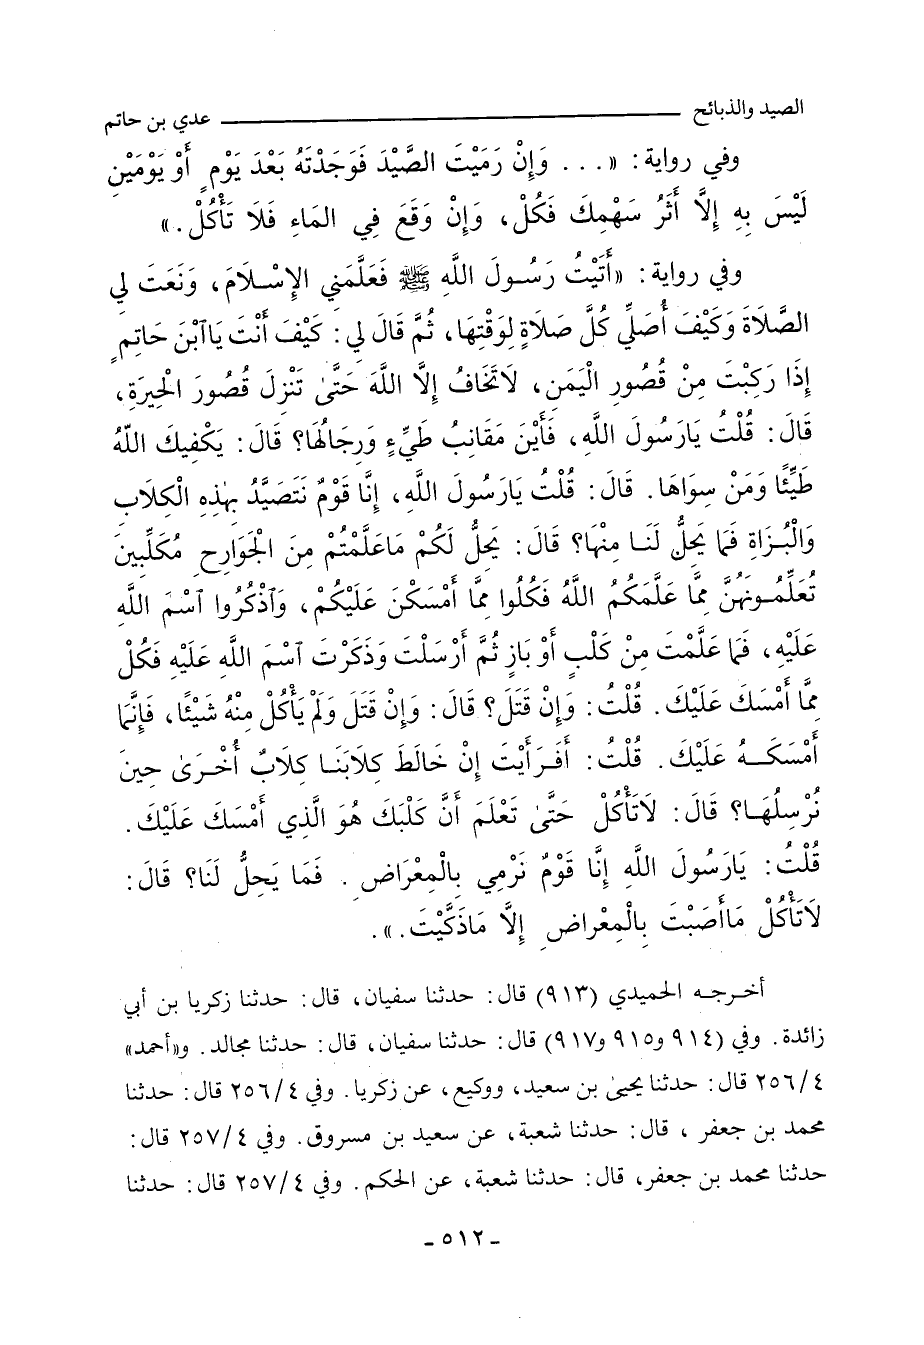 الصيد والذبائح ــــــــــــــــــــ عدي بن حاتم
وفي رواية: «... وَإِنْ رَمَيْتَ الصَّيْدَ فَوَجَدْتَهُ بَعْدَ يَوْمٍ أَوْ يَوْمَيْنِ
لَيْسَ بِهِ إِلَّا أَثَرُ سَهْمِكَ فَكُلْ، وَإِنْ وَقَعَ فِي المَاءِ فَلَا تَأْكُلْ.»
وفي رواية: «أَتَيْتُ رَسُولَ اللَّهِ ﷺ فَعَلَّمَنِي الإِسْلَامَ، وَنَعَتَ لِي
الصَّلَاةَ وَكَيْفَ أُصَلِّي كُلَّ صَلَاةٍ لِوَقْتِهَا، ثُمَّ قَالَ لِي: كَيْفَ أَنْتَ يَاآبْنَ حَاتِمٍ
إِذَا رَكِبْتَ مِنْ قُصُورِ الْيَمَنِ، لَاتَخَافُ إِلَّا اللَّهَ حَتَّىٰ تَنْزِلَ قُصُورَ الْحِيرَةِ،
قَالَ: قُلْتُ يَارَسُولَ اللَّهِ، فَأَيْنَ مَقَانِبُ طَيِّءٍ وَرِجَالُهَا؟ قَالَ: يَكْفِيكَ اللَّهُ
طَيِّئًا وَمَنْ سِوَاهَا. قَالَ: قُلْتُ يَارَسُولَ اللَّهِ، إِنَّا قَوْمٌ نَتَصَيَّدُ بِهٰذِهِ الْكِلَابِ
وَالْبُزَاةِ فَمَا يَحِلُّ لَنَا مِنْهَا؟ قَالَ: يَحِلُّ لَكُمْ مَاعَلَّمْتُمْ مِنَ الْجَوَارِحِ مُكَلِّبِينَ
تُعَلِّمُونَهُنَّ مِمَّا عَلَّمَكُمُ اللَّهُ فَكُلُوا مِمَّا أَمْسَكْنَ عَلَيْكُمْ، وَاذْكُرُوا اسْمَ اللَّهِ
عَلَيْهِ، فَمَا عَلَّمْتَ مِنْ كَلْبٍ أَوْ بَازٍ ثُمَّ أَرْسَلْتَ وَذَكَرْتَ اسْمَ اللَّهِ عَلَيْهِ فَكُلْ
مِمَّا أَمْسَكَ عَلَيْكَ. قُلْتُ: وَإِنْ قَتَلَ؟ قَالَ: وَإِنْ قَتَلَ وَلَمْ يَأْكُلْ مِنْهُ شَيْئًا، فَإِنَّمَا
أَمْسَكَهُ عَلَيْكَ. قُلْتُ: أَفَرَأَيْتَ إِنْ خَالَطَ كِلَابَنَا كِلَابٌ أُخْرَىٰ حِينَ
نُرْسِلُهَا؟ قَالَ: لَاتَأْكُلْ حَتَّىٰ تَعْلَمَ أَنَّ كَلْبَكَ هُوَ الَّذِي أَمْسَكَ عَلَيْكَ.
قُلْتُ: يَارَسُولَ اللَّهِ إِنَّا قَوْمٌ نَرْمِي بِالْمِعْرَاضِ. فَمَا يَحِلُّ لَنَا؟ قَالَ:
لَاتَأْكُلْ مَاأَصَبْتَ بِالْمِعْرَاضِ إِلَّا مَاذَكَّيْتَ.».
أخرجه الحميدي (٩١٣) قال: حدثنا سفيان، قال: حدثنا زكريا بن أبي
زائدة. وفي (٩١٤ و٩١٥ و٩١٧) قال: حدثنا سفيان، قال: حدثنا مجالد. و«أحمد»
٢٥٦/٤ قال: حدثنا يحيىٰ بن سعيد، ووكيع، عن زكريا. وفي ٢٥٦/٤ قال: حدثنا
محمد بن جعفر، قال: حدثنا شعبة، عن سعيد بن مسروق. وفي ٢٥٧/٤ قال:
حدثنا محمد بن جعفر، قال: حدثنا شعبة، عن الحكم. وفي ٢٥٧/٤ قال: حدثنا
ـ ٥١٢ ـ